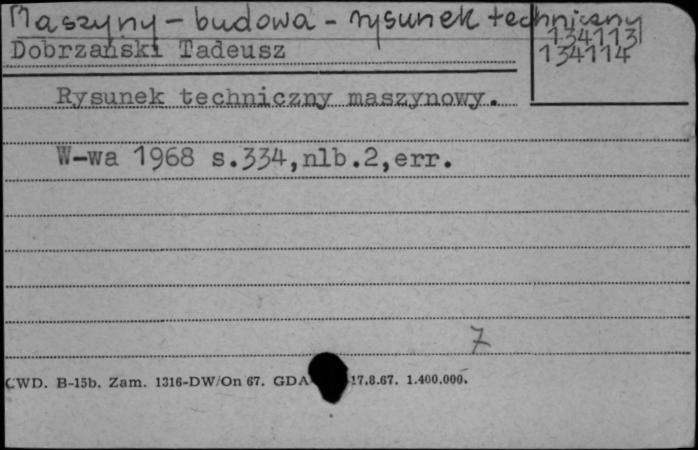 Maszyny - budowa - rysunek techniczny
134113
Dobrzański Tadeusz
134114
Rysunek techniczny maszynowy.
W-wa 1968 s.334,nlb.2,err.
7
CWD. B-15b. Zam. 1316-DW/On 67. GDA 17.8.67. 1.400.000.